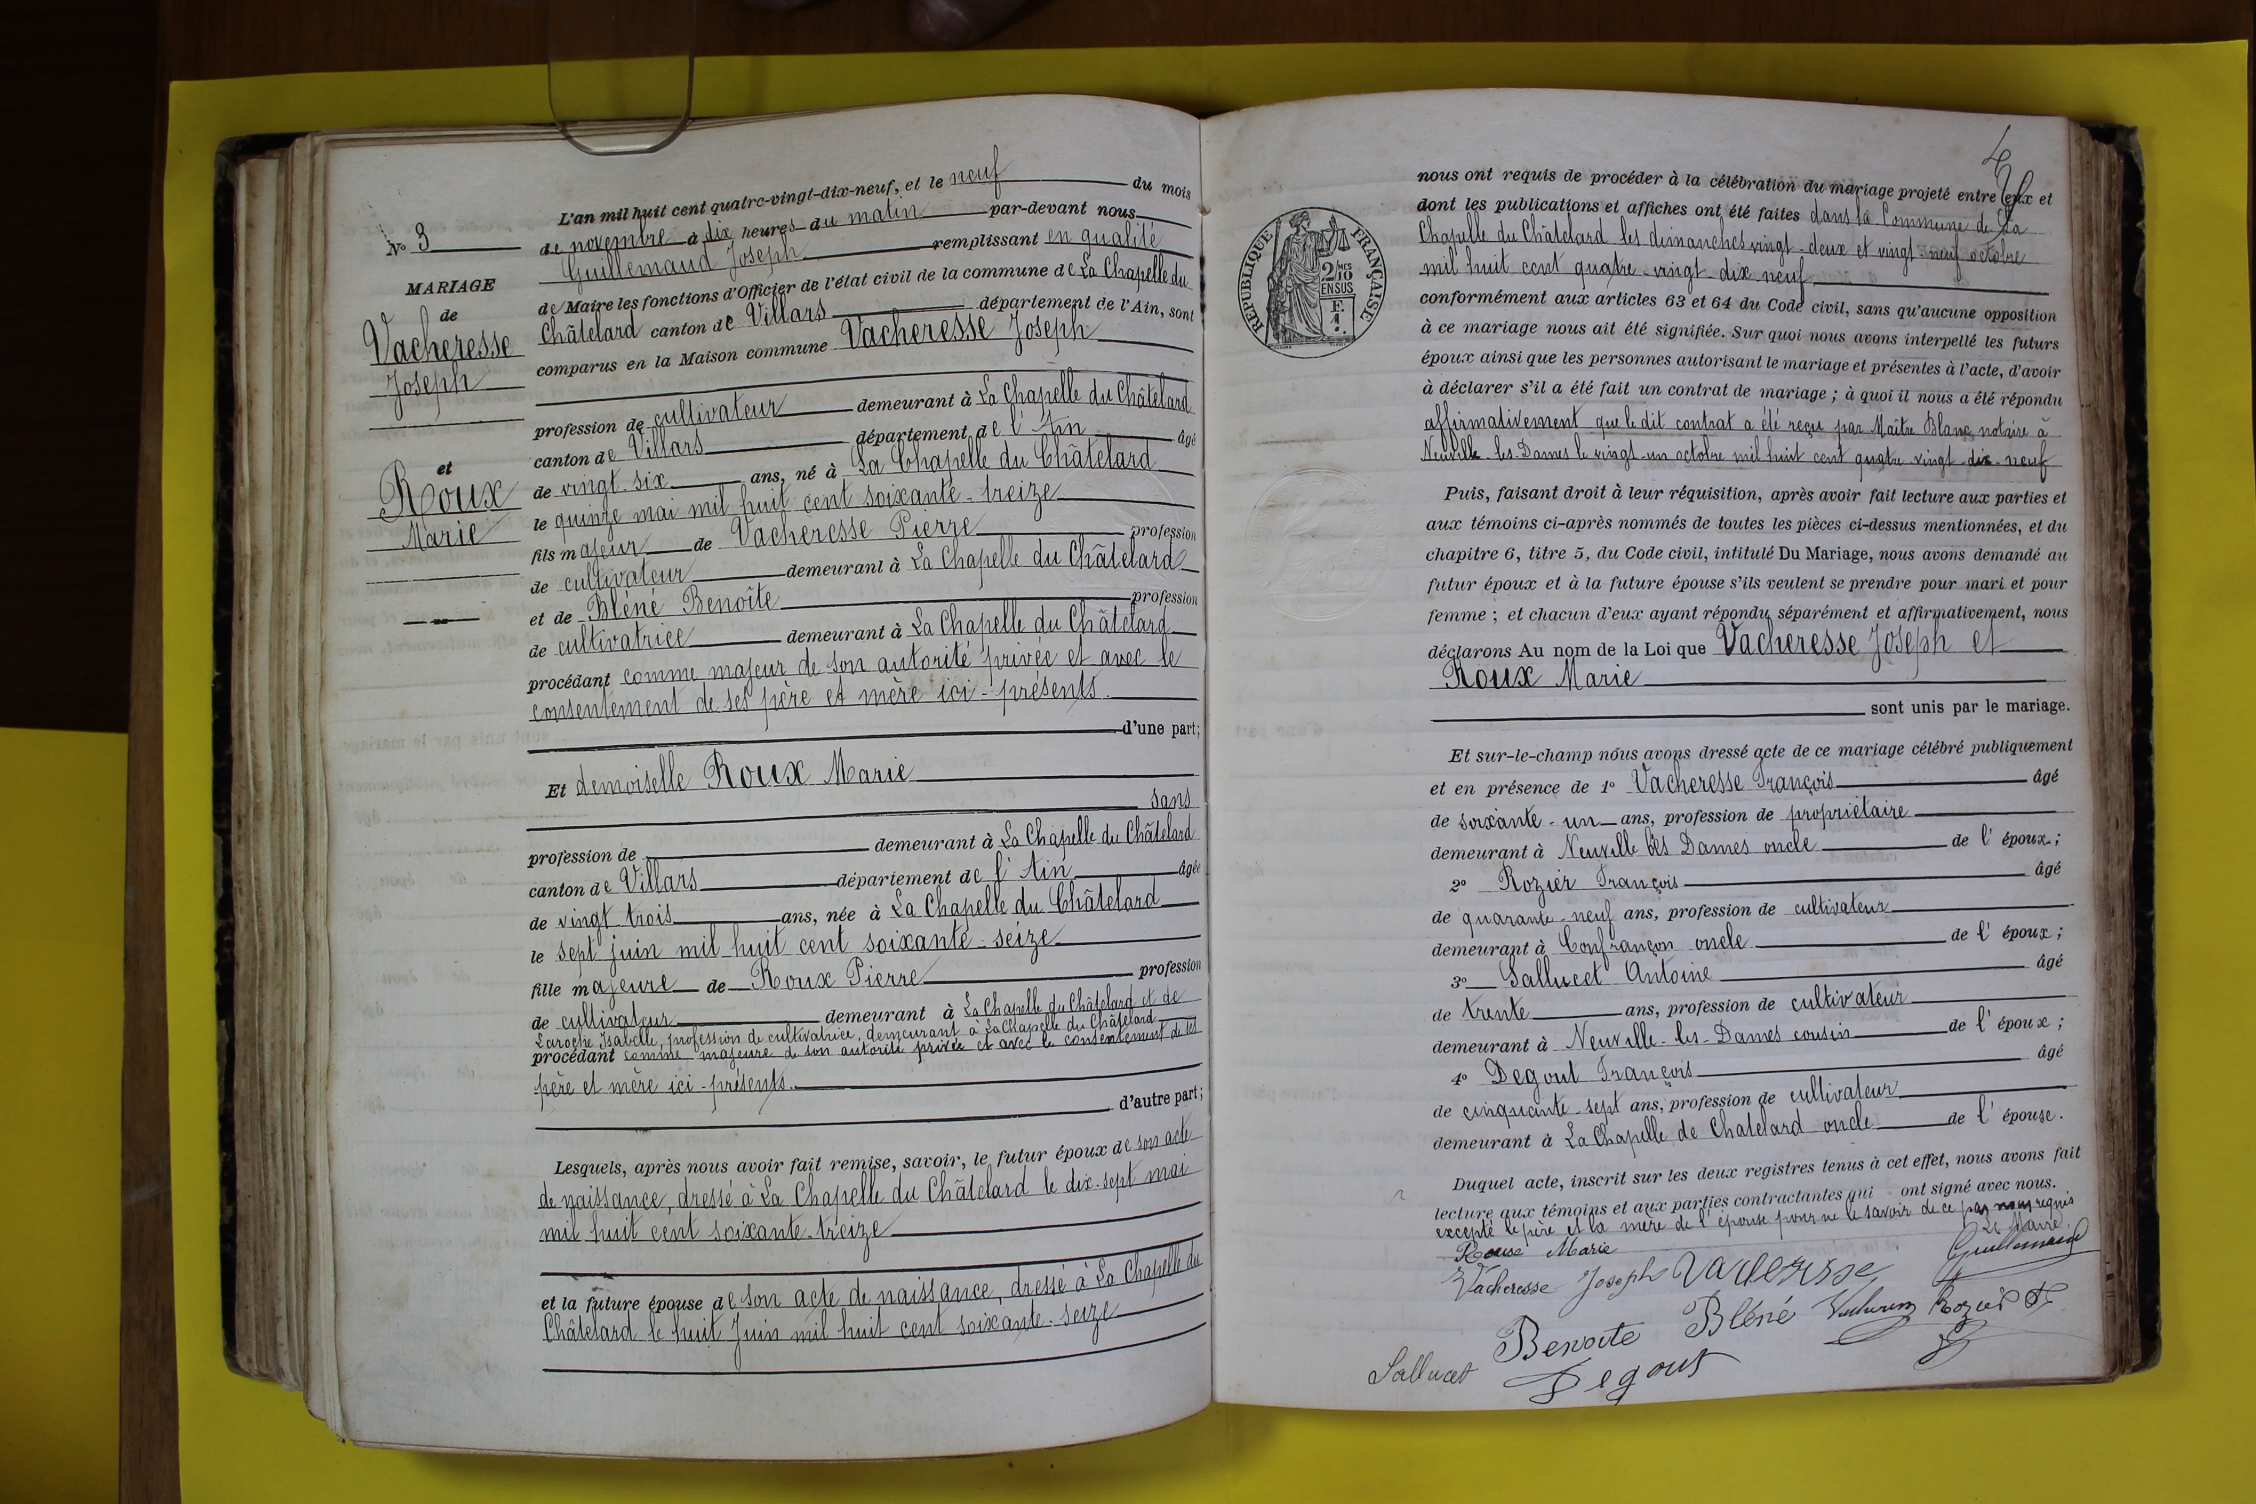 N° 3
MARIAGE
de
Vacheresse
Joseph
et
Roux
Marie
L'an mil huit cent quatre-vingt-dix-neuf, et le neuf du mois
de novembre à dix heures du matin par-devant nous
Guillemaud Joseph remplissant en qualité
de Maire les fonctions d'Officier de l'état civil de la commune de La Chapelle du
Châtelard canton de Villars département de l'Ain, sont
comparus en la Maison commune Vacheresse Joseph
profession de cultivateur demeurant à La Chapelle du Châtelard
canton de Villars département de l'Ain âgé
de vingt-six ans, né à La Chapelle du Châtelard
le quinze mai mil huit cent soixante-treize
fils majeur de Vacheresse Pierre profession
de cultivateur demeurant à La Chapelle du Châtelard
et de Bléné Benoîte profession
de cultivatrice demeurant à La Chapelle du Châtelard
procédant comme majeur de son autorité privée et avec le
consentement de ses père et mère ici-présents.
d'une part;
Et demoiselle Roux Marie
sans
profession de demeurant à La Chapelle du Châtelard
canton de Villars département de l'Ain âgée
de vingt trois ans, née à La Chapelle du Châtelard
le sept juin mil huit cent soixante-seize
fille majeure de Roux Pierre profession
de cultivateur demeurant à La Chapelle du Châtelard et de
Laroche Isabelle, profession de cultivatrice, demeurant à La Chapelle du Châtelard
procédant comme majeure de son autorité privée et avec le consentement de ses
père et mère ici-présents.
d'autre part;
Lesquels, après nous avoir fait remise, savoir, le futur époux de son acte
de naissance, dressé à La Chapelle du Châtelard le dix-sept mai
mil huit cent soixante-treize
et la future épouse de son acte de naissance, dressé à La Chapelle du
Châtelard le huit Juin mil huit cent soixante-seize
4
nous ont requis de procéder à la célébration du mariage projeté entre eux et
dont les publications et affiches ont été faites dans la Commune de La
Chapelle du Châtelard les dimanches vingt-deux et vingt-neuf octobre
mil huit cent quatre-vingt dix neuf
conformément aux articles 63 et 64 du Code civil, sans qu'aucune opposition
à ce mariage nous ait été signifiée. Sur quoi nous avons interpellé les futurs
époux ainsi que les personnes autorisant le mariage et présentes à l'acte, d'avoir
à déclarer s'il a été fait un contrat de mariage; à quoi il nous a été répondu
affirmativement que le dit contrat a été reçu par Maître Blanc notaire à
Neuville-les-Dames le vingt-un octobre mil huit cent quatre vingt-dix-neuf
Puis, faisant droit à leur réquisition, après avoir fait lecture aux parties et
aux témoins ci-après nommés de toutes les pièces ci-dessus mentionnées, et du
chapitre 6, titre 5, du Code civil, intitulé Du Mariage, nous avons demandé au
futur époux et à la future épouse s'ils veulent se prendre pour mari et pour
femme; et chacun d'eux ayant répondu séparément et affirmativement, nous
déclarons Au nom de la Loi que Vacheresse Joseph et
Roux Marie
sont unis par le mariage.
Et sur-le-champ nous avons dressé acte de ce mariage célébré publiquement
et en présence de 1° Vacheresse François âgé
de soixante-un ans, profession de propriétaire
demeurant à Neuville les Dames oncle de l'époux;
2° Rozier François âgé
de quarante-neuf ans, profession de cultivateur
demeurant à Confrançon oncle de l'époux;
3° Sallucet Antoine âgé
de trente ans, profession de cultivateur
demeurant à Neuville-les-Dames cousin de l'époux;
4° Degout François âgé
de cinquante-sept ans, profession de cultivateur
demeurant à La Chapelle de Chatelard oncle de l'épouse.
Duquel acte, inscrit sur les deux registres tenus à cet effet, nous avons fait
lecture aux témoins et aux parties contractantes qui ont signé avec nous.
excepté le père et la mère de l'épouse pour ne le savoir de ce par nous requis
Le Maire
Roux Marie
Guillemaud
Vacheresse Joseph Vacheresse
Benoite Bléné Vacheresse Rozier
Sallucet Degout
RÉPUBLIQUE FRANÇAISE
2 MES
10
EN SUS